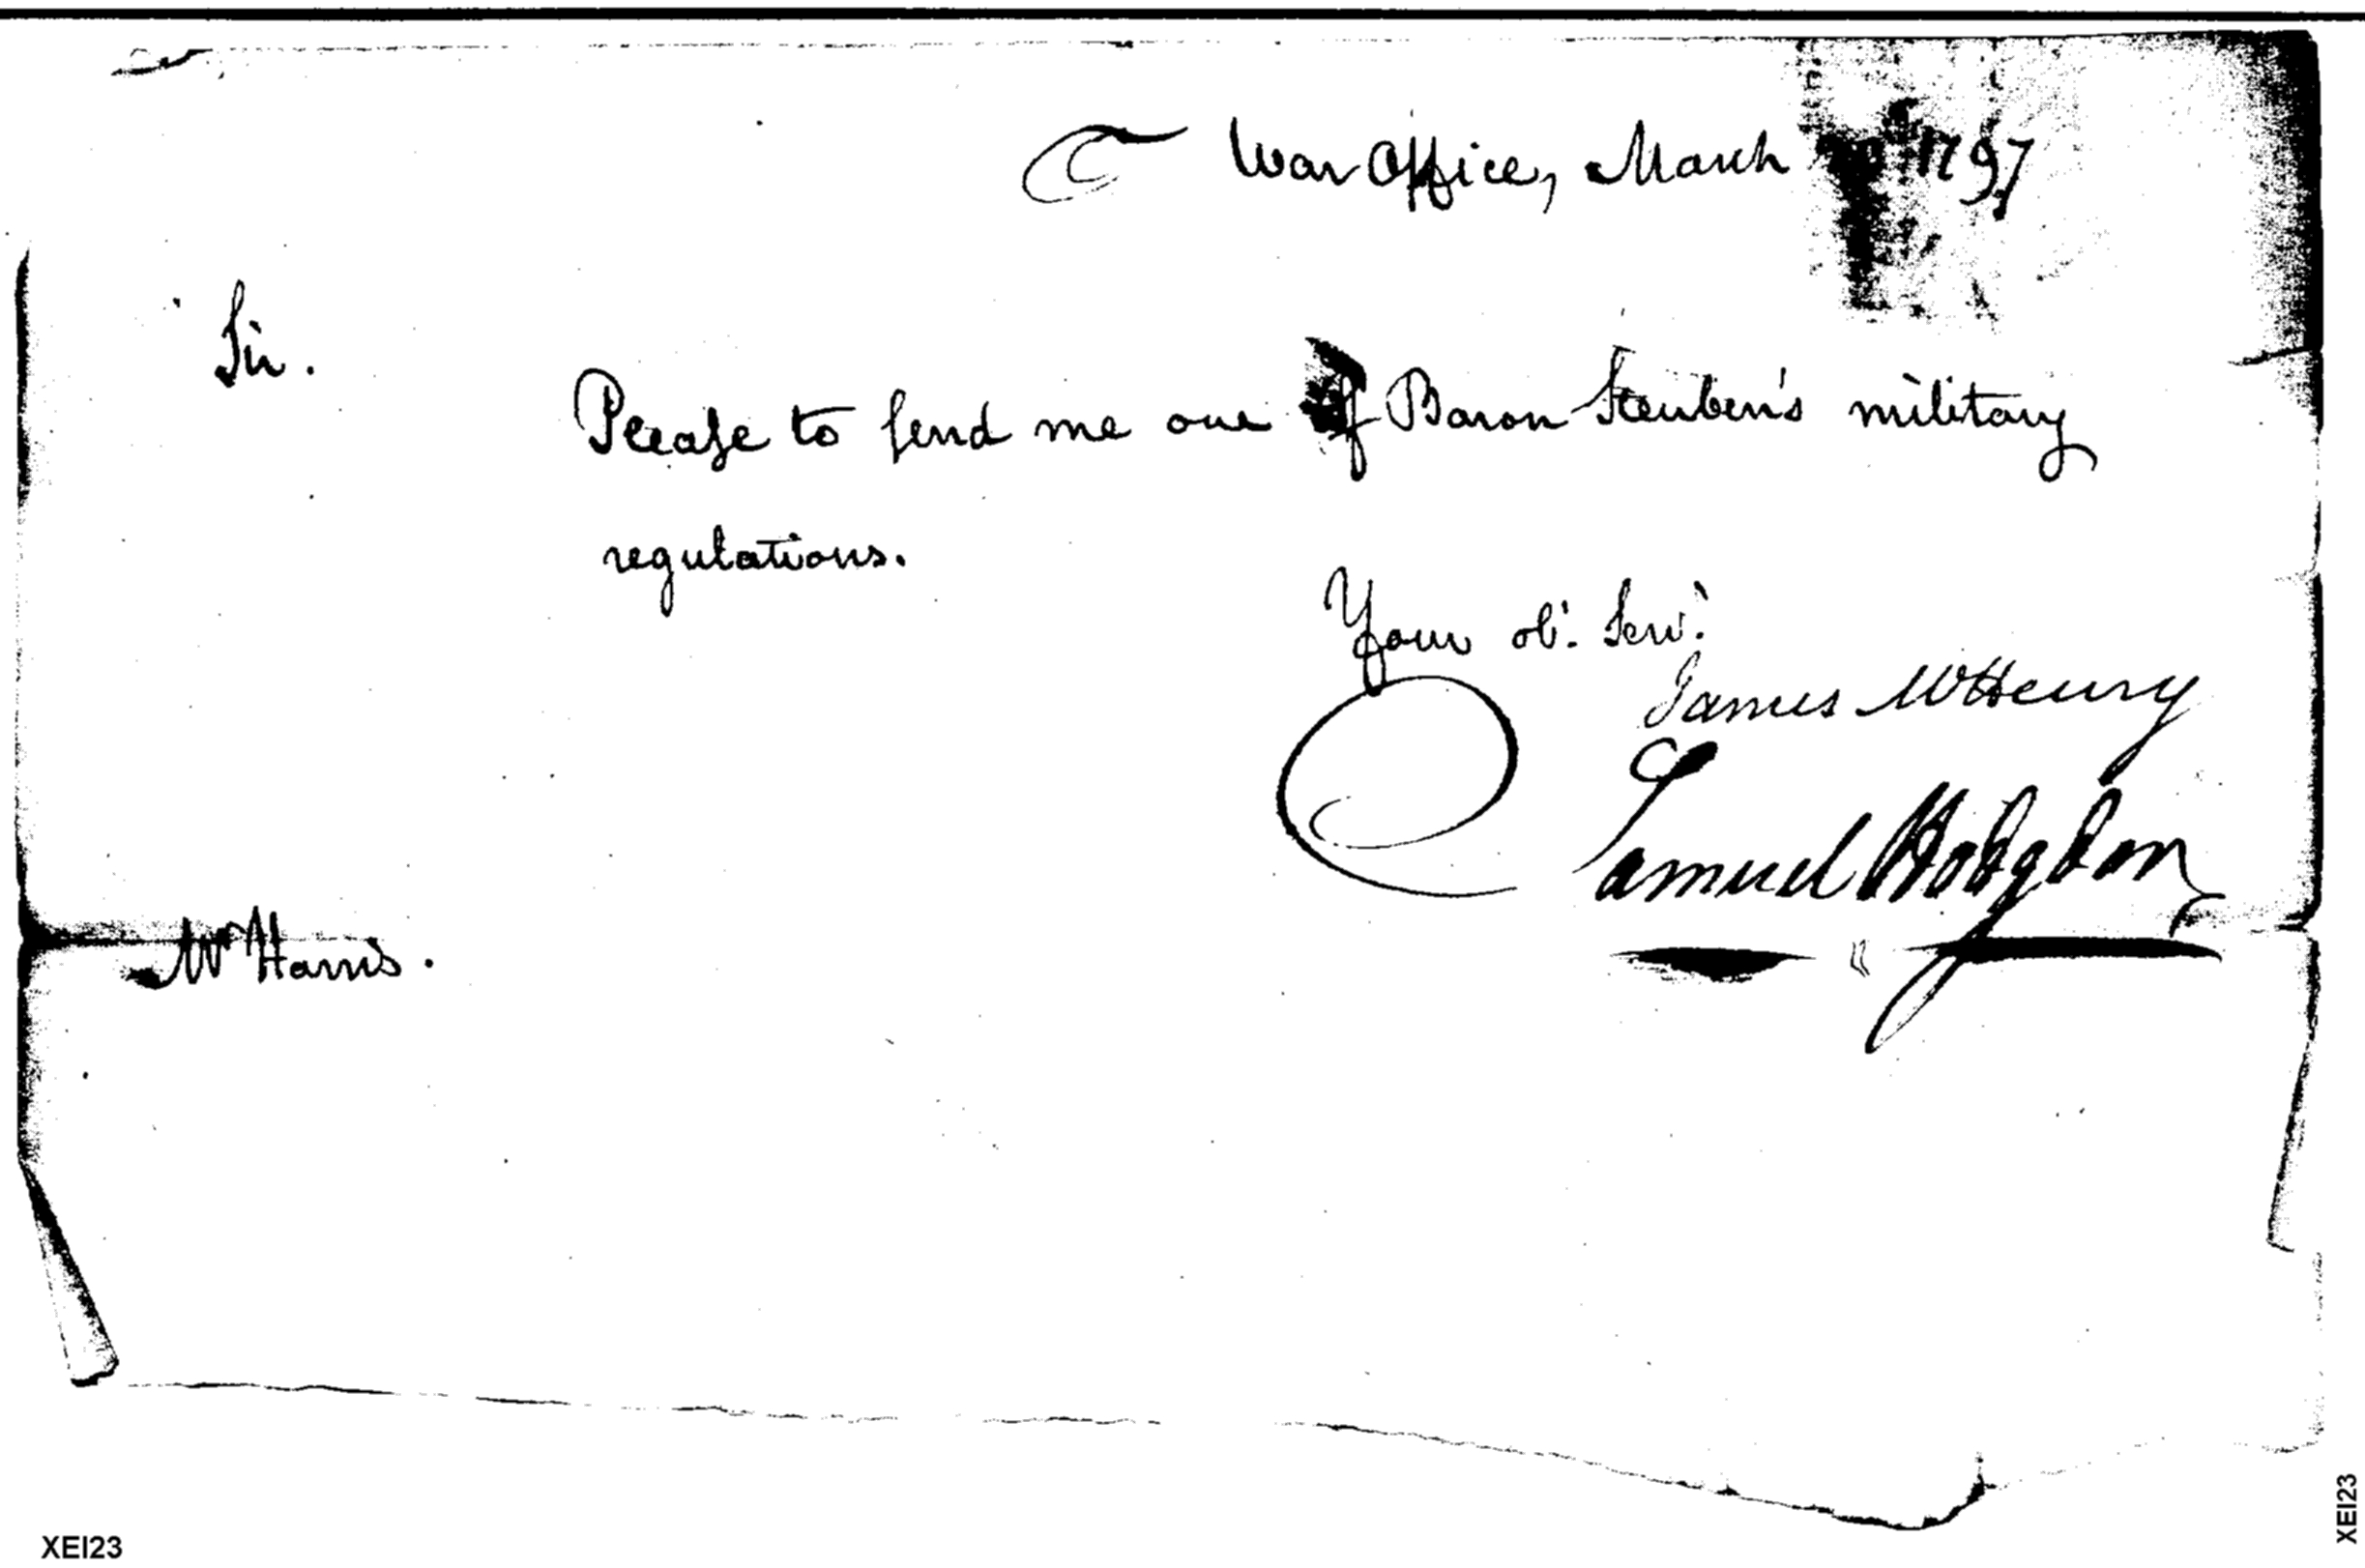 War Office, March 1797
Sir.
Please to send me one of Baron Steuben's military
regulations.
Your obt. Servt.
James McHenry
Samuel Hodgdon
Mr Harris.
XEI23
XEI23